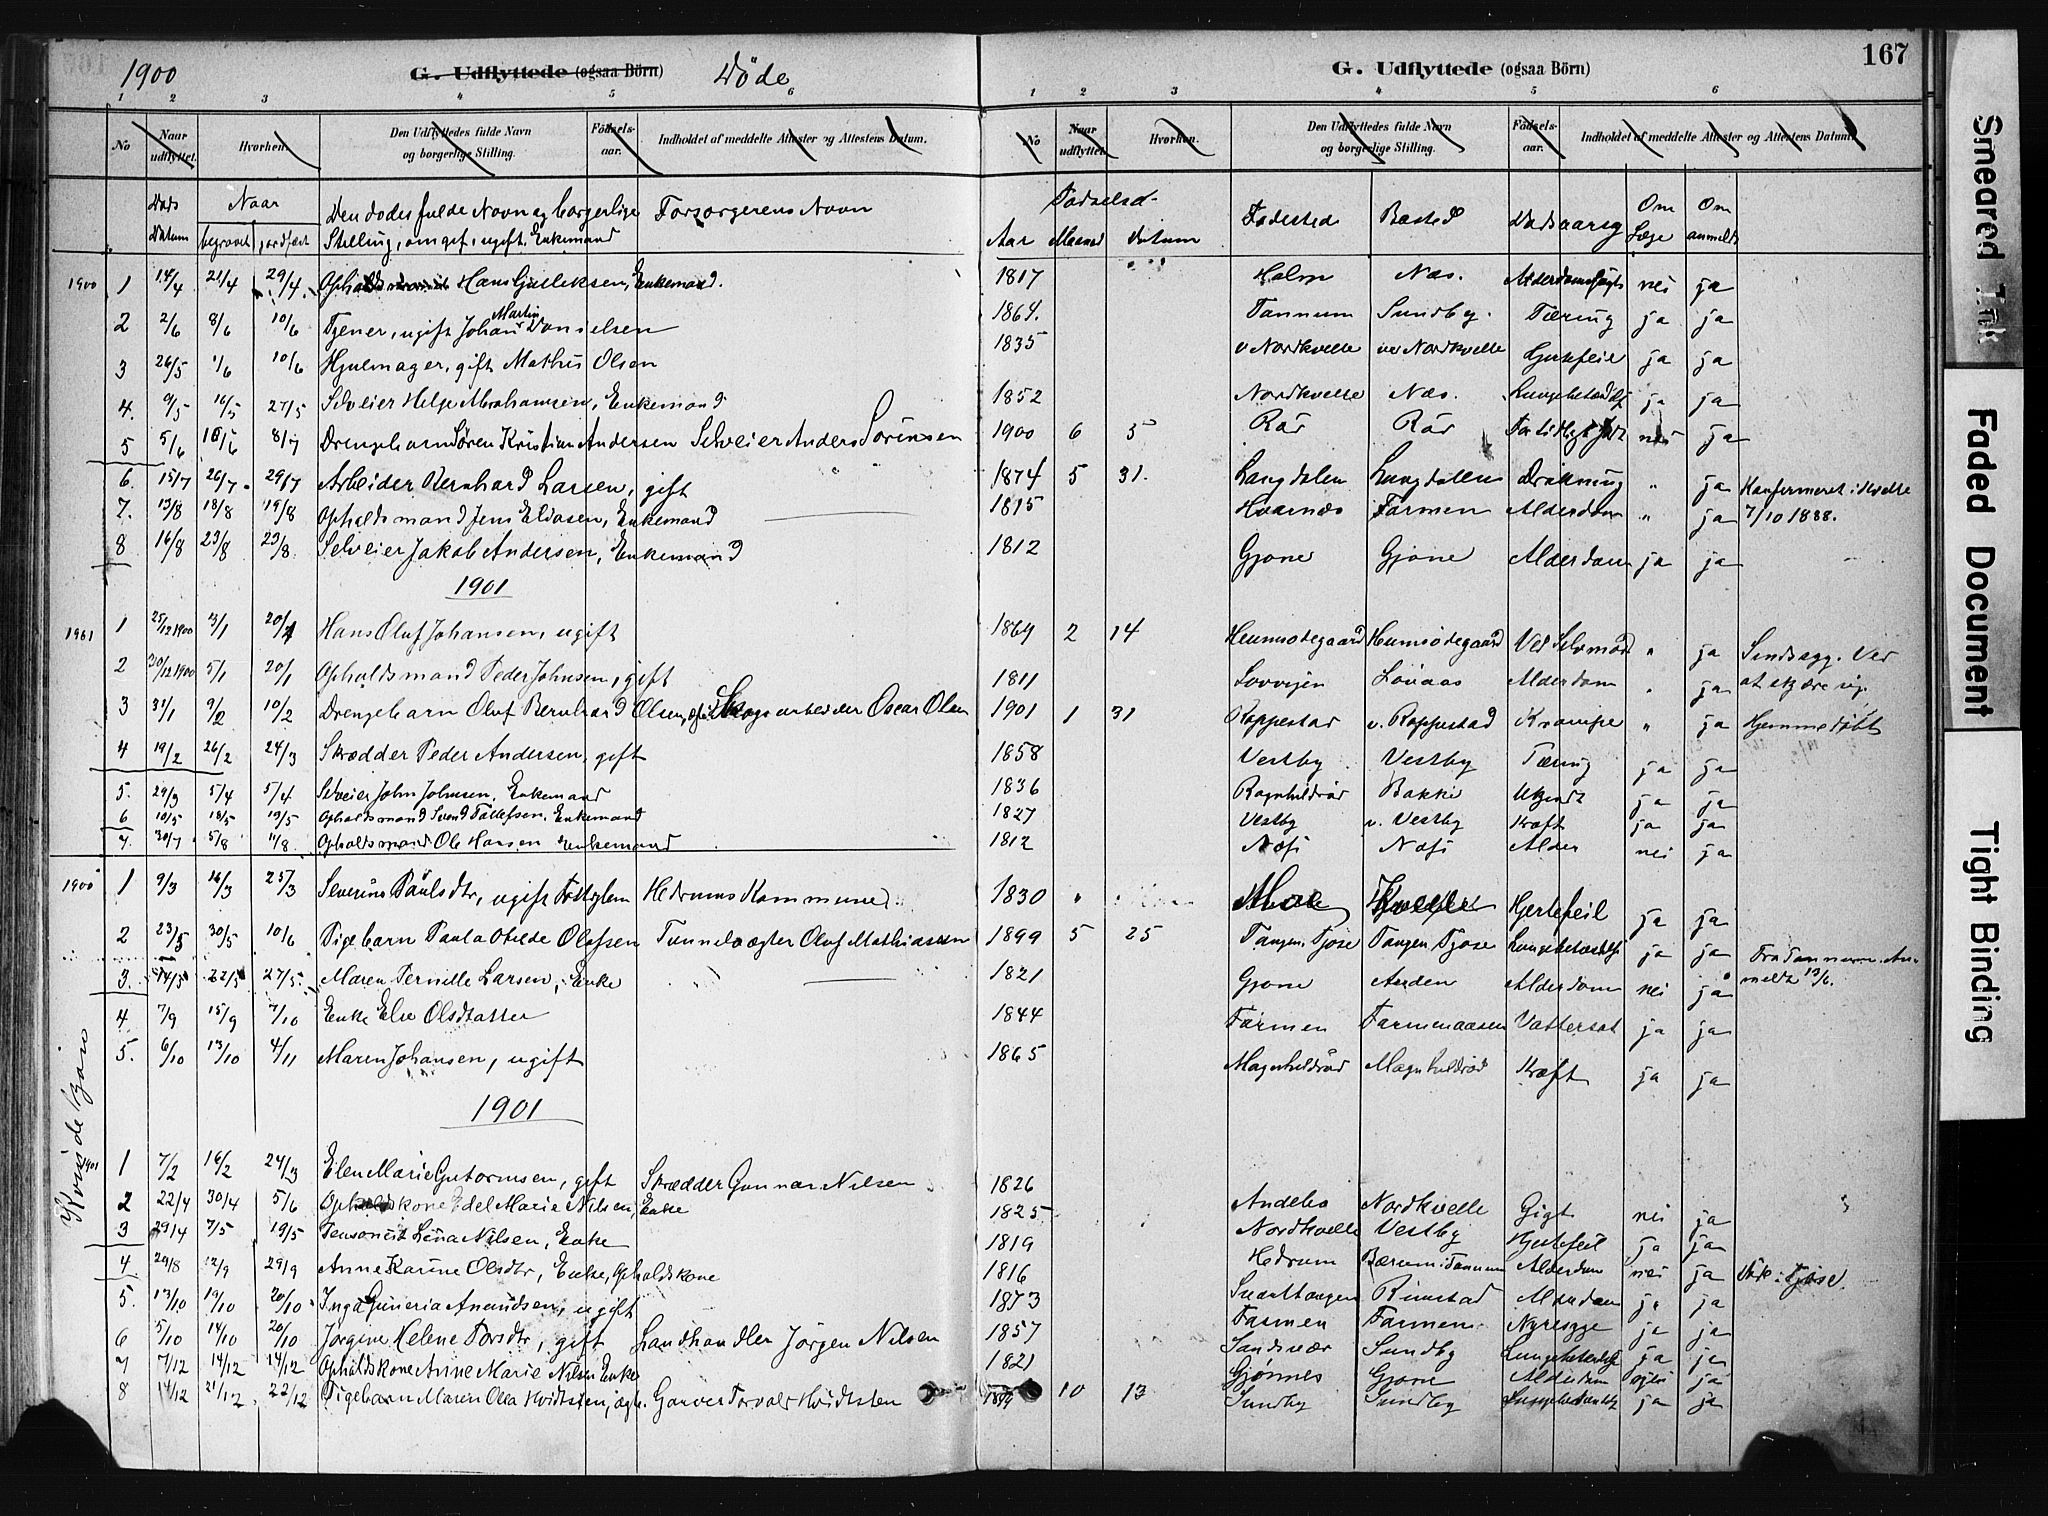 1900 G. Udflyttede (ogsaa Börn) Döde
1 2 3 4 5 6
No Naar udflyttet. Hvorhen. Den Udflyttedes fulde Navn og borgerlige Stilling. Fødsels-aar. Indholdet af meddelte Attester og Attestens Datum.
Døds Datum Naar begravet jordfæst Den dødes fulde Navn og borgerlige Stilling, om gift, ugift, Enkemand Forsørgerens Navn
1900 1 14/4 21/4 29/4 Hans Gulliksen, Enkemand.
2 2/6 8/6 10/6 Tjener, ugift Johan Martin Danielsen
3 26/5 1/6 10/6 Hjulmager, gift Mathis Olsen
4. 9/5 16/5 27/5 Selveier Helge Abrahamsen, Enkemand
5 5/6 8/7 Drengebarn Søren Kristian Andersen Selveier Anders Sørensen
6. 15/7 26/7 29/7 Arbeider Bernhard Larsen, gift
7. 13/8 18/8 19/8 Opholdsmand Jens Eliasen, Enkemand
8 16/8 23/8 23/8. Selveier Jakob Andersen, Enkemand
1901
1901 1 25/12 1900 13/1 20/1 Hans Oluf Johansen, ugift
2 30/12 1900 5/1 20/1 Opholdsmand Peder Johnsen, gift
3 31/1 9/2 10/2 Drengebarn Oluf Bernhard Olsen, Skogsarbeider Oscar Olsen
4 19/2 26/2 24/3 Skrædder Peder Andersen, gift
5. 29/3 5/4 5/4 Selveier John Johnsen, Enkemand
6 10/5 18/5 19/5 Opholdsmand Svend Tollefsen, Enkemand
7. 30/7 5/8 11/8. Opholdsmand Ole Hansen Enkemand
1900 1 9/3 16/3 25/3 Severine Paulsdtr, ugift Hedrums Kommune
2 23/5 30/5 10/6 Pigebarn Paula Otilde Olafsen Tunnelvagter Oluf Mathiassen
3. 14/5 22/5 27/5. Maren Pernille Larsen, Enke
4 7/9 15/9 7/10 Enke Else Olsdatter
5. 6/10 13/10 4/11 Maren Johansen, ugift
1901
Kvindekjøn
1901 1 7/2 16/2 24/3 Elen Marie Gutormsen, gift Skrædder Gunnar Nilsen
2 22/4 30/4 5/6 Opholdskone Edel Marie Nilsen, Enke
3 29/4 7/5 19/5 Lena Nilsen, Enke
4 29/8 12/9 29/9 Anne Karine Olsdtr, Enke, Opholdskone
5. 13/10 19/10 20/10. Inga Guneria Amundsen, ugift
6 5/10 14/10 20/10 Jørgine Helene Torsdtr, gift Landhandler Jørgen Nilsen
7 7/12 14/12 14/12 Opholdskone Anne Marie Nilsen Enke
8 14/12 21/12. 22/12 Pigebarn Maren Olea Kvidtsten, Garver Torvald Kvidtsten
167
G. Udflyttede (ogsaa Börn)
1 2 3 4 5 6
No Naar udflyttet Hvorhen. Den Udflyttedes fulde Navn og borgerlige Stilling. Fødsels-aar. Indholdet af meddelte Attester og Attestens Datum
Fødselsd- Aar Maaned Datum Fødested Bosted Dødsaarsag Om Læge Om anmeldt
1817 Holm Næs. nei ja
1864. Tannum Sundby. Tæring ja ja
1835 v Nordkvelle Nordkvelle Hjertefeil ja ja
1852 Nordkvelle Næs. ja ja
1900 6 5 Rår Rår nei ja
1874 5 31. Langdalen Langdalen Drukning " ja Konfirmeret i Kvelle
1815 Hvarnæs Farmen Alderdom " ja 7/10 1888.
1812 Gjone Gjone Alderdom ja ja
1869 2 14 Ved Selvmord " ja Sindssyg. Ved
1811 Alderdom " ja at skjære sig.
1901 1 31 Roppestad v. Roppestad Krampe " ja Hjemmedøbt
1858 Vestby Vestby Tæring ja ja
1836 Bakke Ukjendt ja ja
1827 Vestby v. Vestby Kræft ja ja
1812 Alder nei ja
1830 Moe Kvelle Hjertefeil ja ja
1899 5 25 Tangen Tjose Tangen Tjose ja ja Fra Tannum. An-
1821 Gjone Alderdom nei ja meldt 13/6.
1844 Farmen Farmenaasen Vattersot ja ja
1865 Magnhildrød Magnhildrød Kræft ja ja
1826 Andebo Nordkvelle Gigt nei ja
1825. Nordkvelle Vestby Hjertefeil ja ja
1819 Hedrum Alderdom nei ja
1816 Rimstad Alderdom ja ja
1873 Farmen Farmen Nyresyge ja ja
1857 Sandsvær Sundby ja ja
1821 Gjønnes Gjone Alderdom nei ja
1899 10 13 Sundby Sundby ja ja
Smeared Ink
Faded Document
Tight Binding